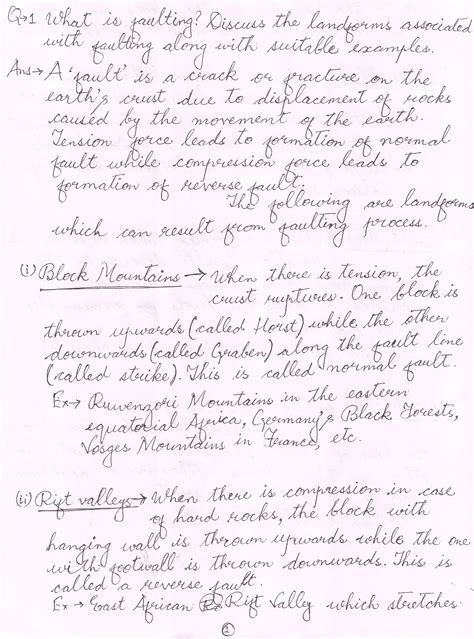 Q→1 What is faulting? Discuss the landforms associated
with faulting along with suitable examples.
Ans→ A 'fault' is a crack or fracture on the
earth's crust due to displacement of rocks
caused by the movement of the earth.
Tension force leads to formation of normal
fault while compression force leads to
formation of reverse fault.
The following are landforms
which can result from faulting process.
(i) Block Mountains → When there is tension, the
crust ruptures. One block is
thrown upwards (called Horst) while the other
downwards (called Graben) along the fault line
(called strike). This is called normal fault.
Ex → Ruwenzori Mountains in the eastern
equatorial Africa, Germany's Black Forests,
Vosges Mountains in France, etc.
(ii) Rift valleys → When there is compression in case
of hard rocks, the block with
hanging wall is thrown upwards while the one
with footwall is thrown downwards. This is
called a reverse fault.
Ex → East African Rift Valley which stretches
1